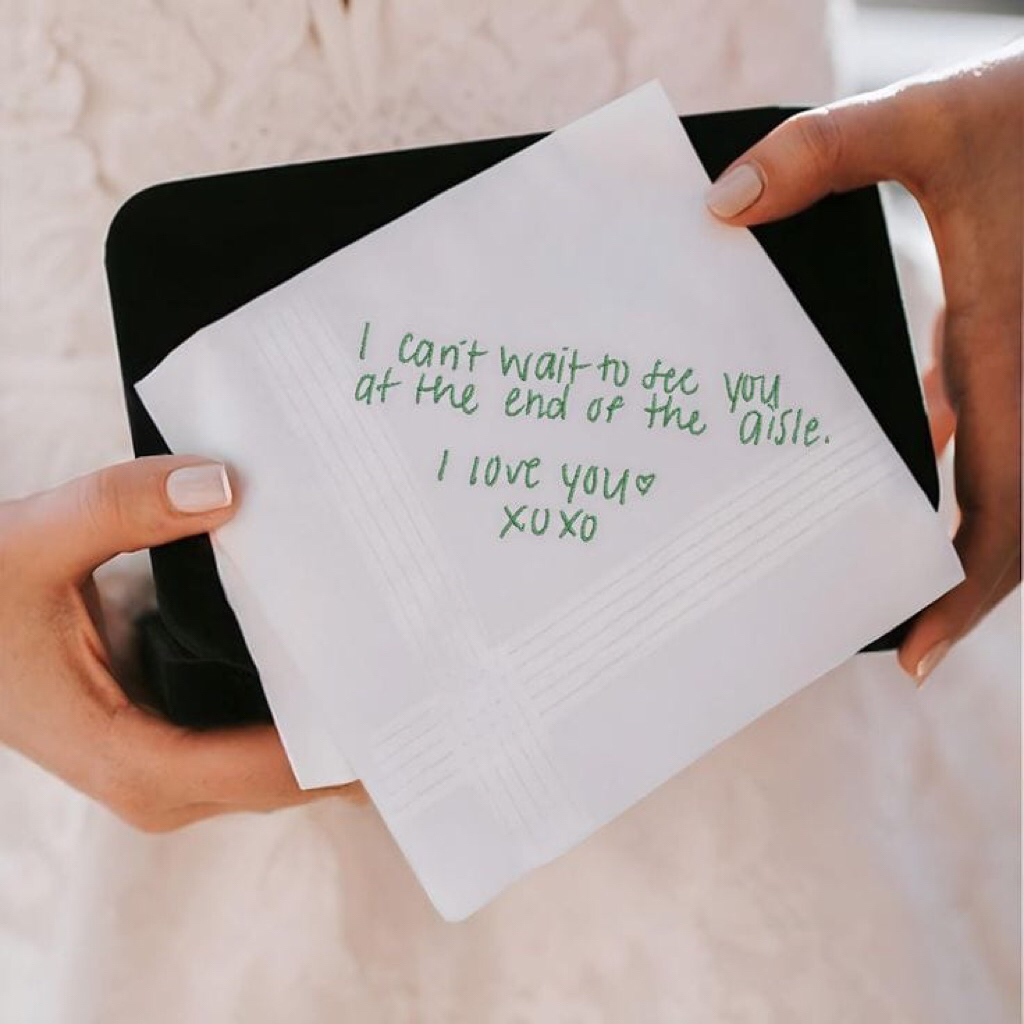 I can't wait to see you
at the end of the aisle.
I love you♡
XOXO